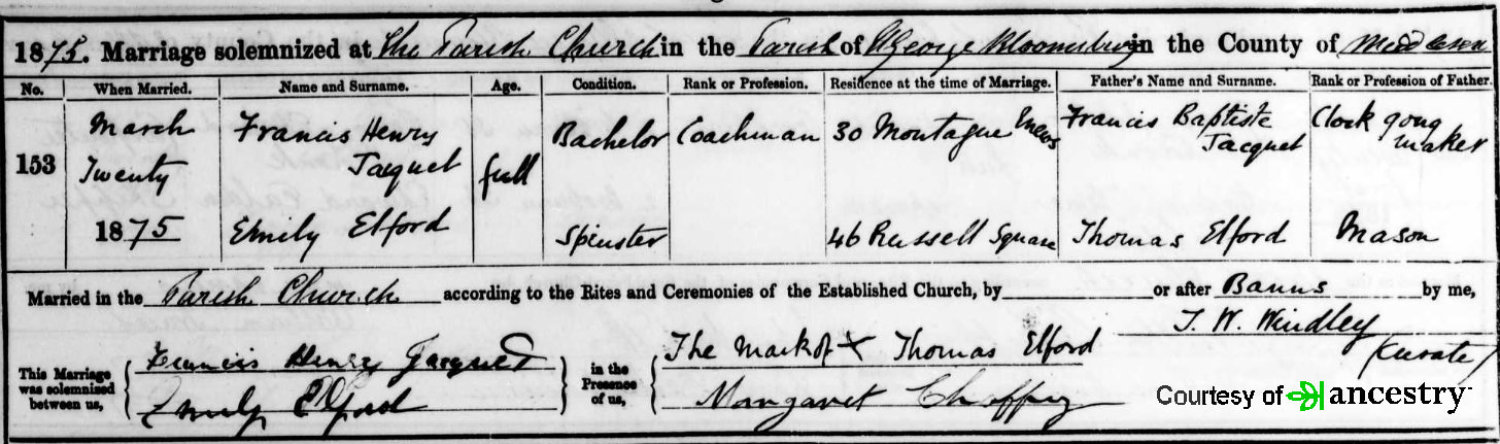 1875. Marriage solemnized at the Parish Church in the Parish of St George Bloomsbury in the County of Middlesex
No. When Married. Name and Surname. Age. Condition. Rank or Profession. Residence at the time of Marriage. Father's Name and Surname. Rank or Profession of Father.
153 March Twenty 1875
Francis Henry Jacquet full Bachelor Coachman 30 Montague Mews Francis Baptiste Jacquet Clock gong maker
Emily Elford Spinster 46 Russell Square Thomas Elford Mason
Married in the Parish Church according to the Rites and Ceremonies of the Established Church, by or after Banns by me,
T. W. Windley
(Curate)
This Marriage was solemnized between us,
Francis Henry Jacquet
Emily Elford
in the Presence of us,
The mark of X Thomas Elford
Margaret
Courtesy of ancestry